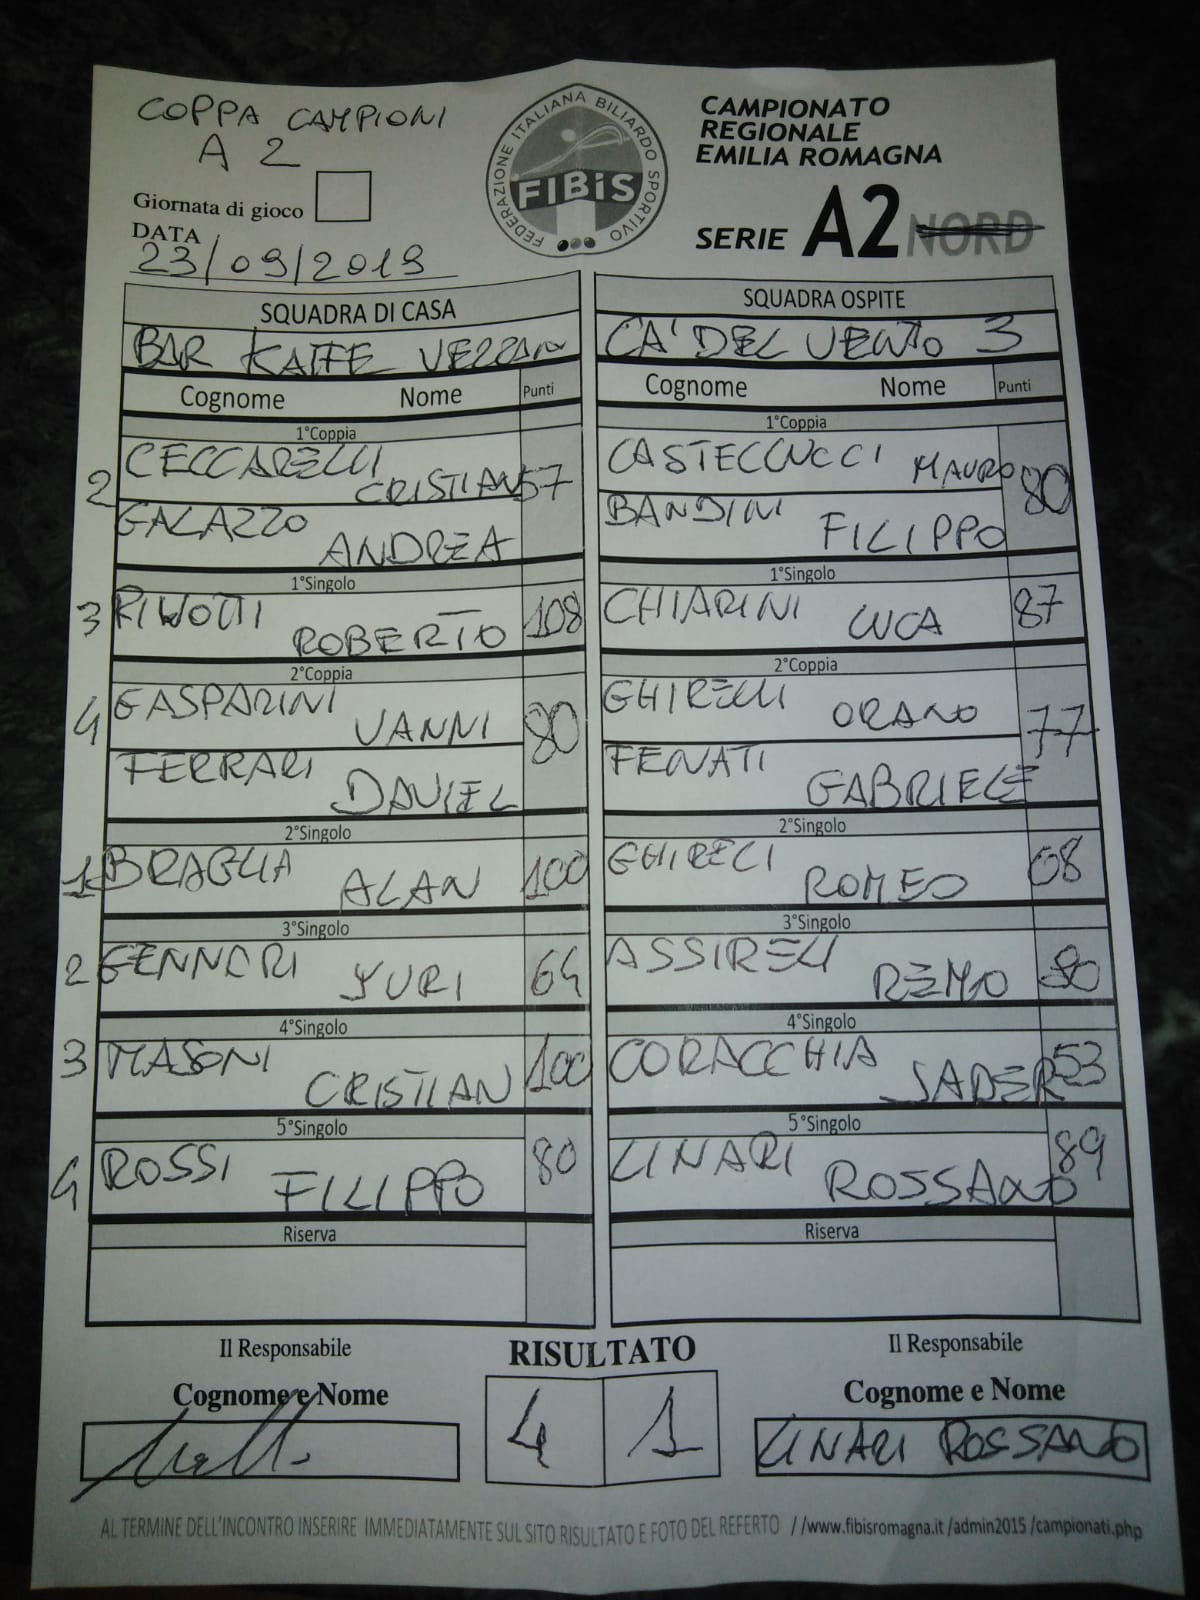 COPPA CAMPIONI
A 2
Giornata di gioco
DATA
23/09/2019
FEDERAZIONE ITALIANA BILIARDO SPORTIVO
FIBiS
CAMPIONATO
REGIONALE
EMILIA ROMAGNA
SERIE A2 NORD
SQUADRA DI CASA
SQUADRA OSPITE
BAR KAFFE VEZZANI
CA' DEL VENTO 3
Cognome Nome Punti
Cognome Nome Punti
1°Coppia
1°Coppia
2 CECCARELLI CRISTIAN 57
CASTELLUCCI MAURO 80
GALAZZO ANDREA
BANDINI FILIPPO
1°Singolo
1°Singolo
3 ROBERTO 108
CHIARINI LUCA 87
2°Coppia
2°Coppia
4 GASPARINI VANNI 80
GHIRELLI ORANO 77
FERRARI DANIEL
FENATI GABRIELE
2°Singolo
2°Singolo
1 BRAGLIA ALAN 100
GHIRELLI ROMEO 68
3°Singolo
3°Singolo
2 GENNARI YURI 64
ASSIRELLI REMO 80
4°Singolo
4°Singolo
3 MASONI CRISTIAN 100
CORACCHIA SADER 53
5°Singolo
5°Singolo
4 ROSSI FILIPPO 80
LINARI ROSSANO 89
Riserva
Riserva
Il Responsabile
RISULTATO
Il Responsabile
Cognome e Nome
Cognome e Nome
4 1
LINARI ROSSANO
AL TERMINE DELL'INCONTRO INSERIRE IMMEDIATAMENTE SUL SITO RISULTATO E FOTO DEL REFERTO //www.fibisromagna.it /admin2015 /campionati.php